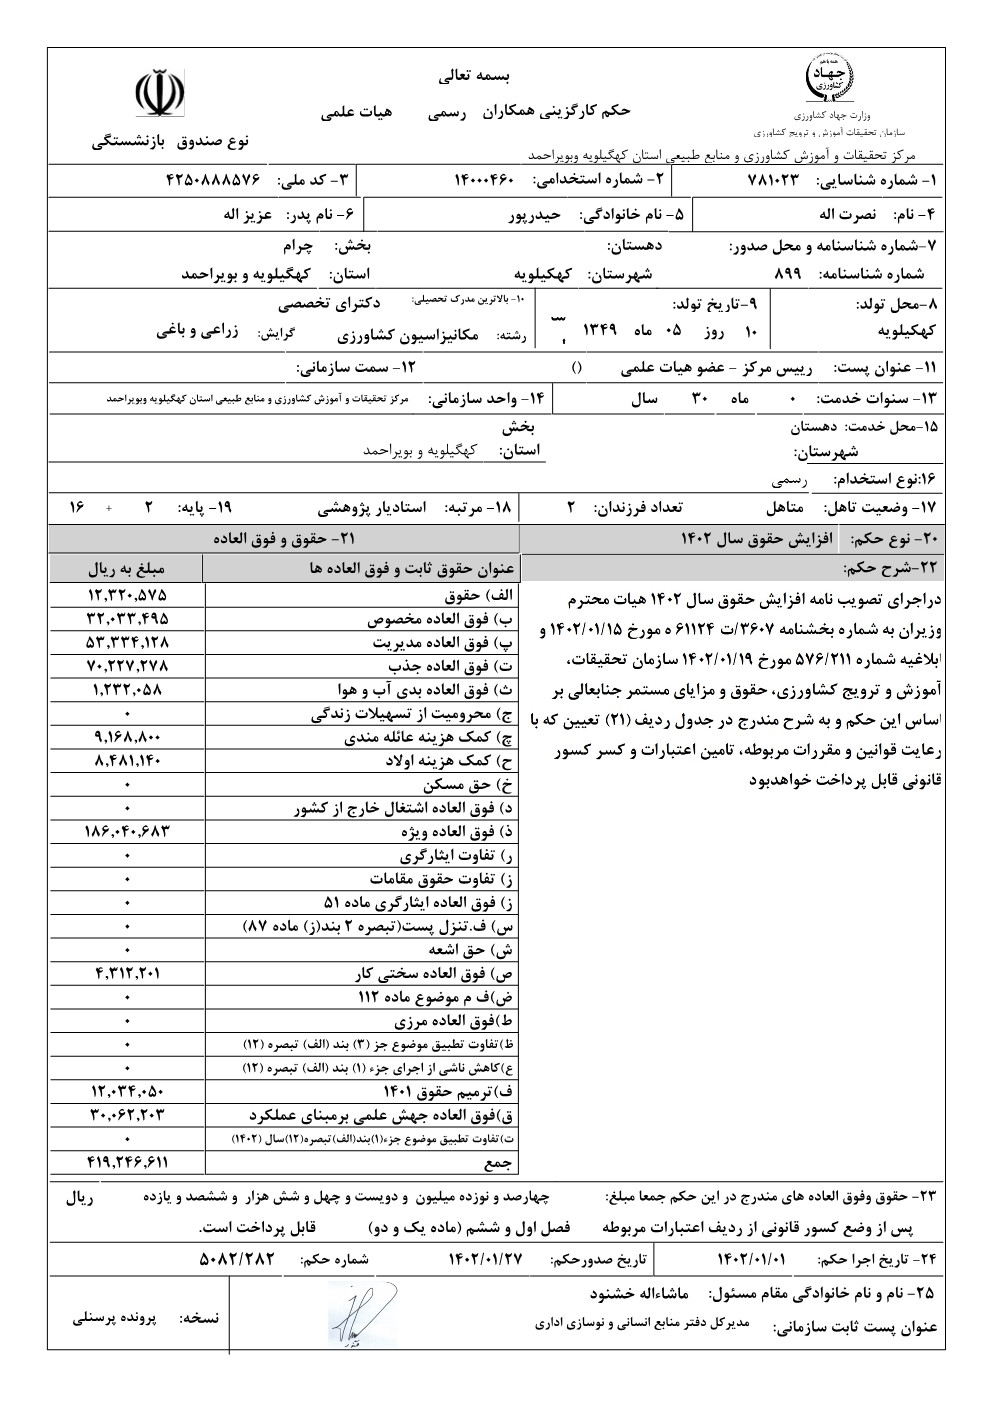 بسمه تعالی
حکم کارگزینی همکاران رسمی هیات علمی
نوع صندوق بازنشستگی
جهاد
کشاورزی
وزارت جهاد کشاورزی
سازمان تحقیقات آموزش و ترویج کشاورزی
مرکز تحقیقات و آموزش کشاورزی و منابع طبیعی استان کهگیلویه وبویراحمد
۱- شماره شناسایی: ۷۸۱۰۲۳ ۲- شماره استخدامی: ۱۴۰۰۰۴۶۰ ۳- کد ملی: ۴۲۵۰۸۸۸۵۷۶
۴- نام: نصرت اله ۵- نام خانوادگی: حیدرپور ۶- نام پدر: عزیز اله
۷-شماره شناسنامه و محل صدور: دهستان: بخش: چرام
شماره شناسنامه: ۸۹۹ شهرستان: کهکیلویه استان: کهگیلویه و بویراحمد
۸-محل تولد: ۹-تاریخ تولد: ۱۰- بالاترین مدرک تحصیلی: دکترای تخصصی
کهکیلویه ۱۰ روز ۰۵ ماه ۱۳۴۹ رشته: مکانیزاسیون کشاورزی گرایش: زراعی و باغی
۱۱- عنوان پست: رییس مرکز - عضو هیات علمی () ۱۲- سمت سازمانی:
۱۳- سنوات خدمت: ۰ ماه ۳۰ سال ۱۴- واحد سازمانی: مرکز تحقیقات و آموزش کشاورزی و منابع طبیعی استان کهگیلویه وبویراحمد
۱۵-محل خدمت: دهستان بخش
شهرستان: استان: کهگیلویه و بویراحمد
۱۶:نوع استخدام: رسمی
۱۷- وضعیت تاهل: متاهل تعداد فرزندان: ۲ ۱۸- مرتبه: استادیار پژوهشی ۱۹- پایه: ۲ + ۱۶
۲۰- نوع حکم: افزایش حقوق سال ۱۴۰۲ ۲۱- حقوق و فوق العاده
۲۲-شرح حکم:
دراجرای تصویب نامه افزایش حقوق سال ۱۴۰۲ هیات محترم
وزیران به شماره بخشنامه ۳۶۰۷/ت ۶۱۱۲۴ ه مورخ ۱۴۰۲/۰۱/۱۵ و
ابلاغیه شماره ۵۷۶/۲۱۱ مورخ ۱۴۰۲/۰۱/۱۹ سازمان تحقیقات،
آموزش و ترویج کشاورزی، حقوق و مزایای مستمر جنابعالی بر
اساس این حکم و به شرح مندرج در جدول ردیف (۲۱) تعیین که با
رعایت قوانین و مقررات مربوطه، تامین اعتبارات و کسر کسور
قانونی قابل پرداخت خواهدبود
عنوان حقوق ثابت و فوق العاده ها مبلغ به ریال
الف) حقوق ۱۲,۳۲۰,۵۷۵
ب) فوق العاده مخصوص ۳۲,۰۳۳,۴۹۵
پ) فوق العاده مدیریت ۵۳,۳۳۴,۱۲۸
ت) فوق العاده جذب ۷۰,۲۲۷,۲۷۸
ث) فوق العاده بدی آب و هوا ۱,۲۳۲,۰۵۸
ج) محرومیت از تسهیلات زندگی ۰
چ) کمک هزینه عائله مندی ۹,۱۶۸,۸۰۰
ح) کمک هزینه اولاد ۸,۴۸۱,۱۴۰
خ) حق مسکن ۰
د) فوق العاده اشتغال خارج از کشور ۰
ذ) فوق العاده ویژه ۱۸۶,۰۴۰,۶۸۳
ر) تفاوت ایثارگری ۰
ز) تفاوت حقوق مقامات ۰
ژ) فوق العاده ایثارگری ماده ۵۱ ۰
س) ف.تنزل پست(تبصره ۲ بند(ز) ماده ۸۷) ۰
ش) حق اشعه ۰
ص) فوق العاده سختی کار ۴,۳۱۲,۲۰۱
ض)ف م موضوع ماده ۱۱۲ ۰
ط)فوق العاده مرزی ۰
ظ)تفاوت تطبیق موضوع جز (۳) بند (الف) تبصره (۱۲) ۰
ع)کاهش ناشی از اجرای جزء (۱) بند (الف) تبصره (۱۲) ۰
ف)ترمیم حقوق ۱۴۰۱ ۱۲,۰۳۴,۰۵۰
ق)فوق العاده جهش علمی برمبنای عملکرد ۳۰,۰۶۲,۲۰۳
ت)تفاوت تطبیق موضوع جزء(۱)بند(الف)تبصره(۱۲)سال (۱۴۰۲) ۰
جمع ۴۱۹,۲۴۶,۶۱۱
۲۳- حقوق وفوق العاده های مندرج در این حکم جمعا مبلغ: چهارصد و نوزده میلیون و دویست و چهل و شش هزار و ششصد و یازده ریال
پس از وضع کسور قانونی از ردیف اعتبارات مربوطه فصل اول و ششم (ماده یک و دو) قابل پرداخت است.
۲۴- تاریخ اجرا حکم: ۱۴۰۲/۰۱/۰۱ تاریخ صدورحکم: ۱۴۰۲/۰۱/۲۷ شماره حکم: ۵۰۸۲/۲۸۲
۲۵- نام و نام خانوادگی مقام مسئول: ماشاءاله خشنود
عنوان پست ثابت سازمانی: مدیرکل دفتر منابع انسانی و نوسازی اداری
نسخه: پرونده پرسنلی